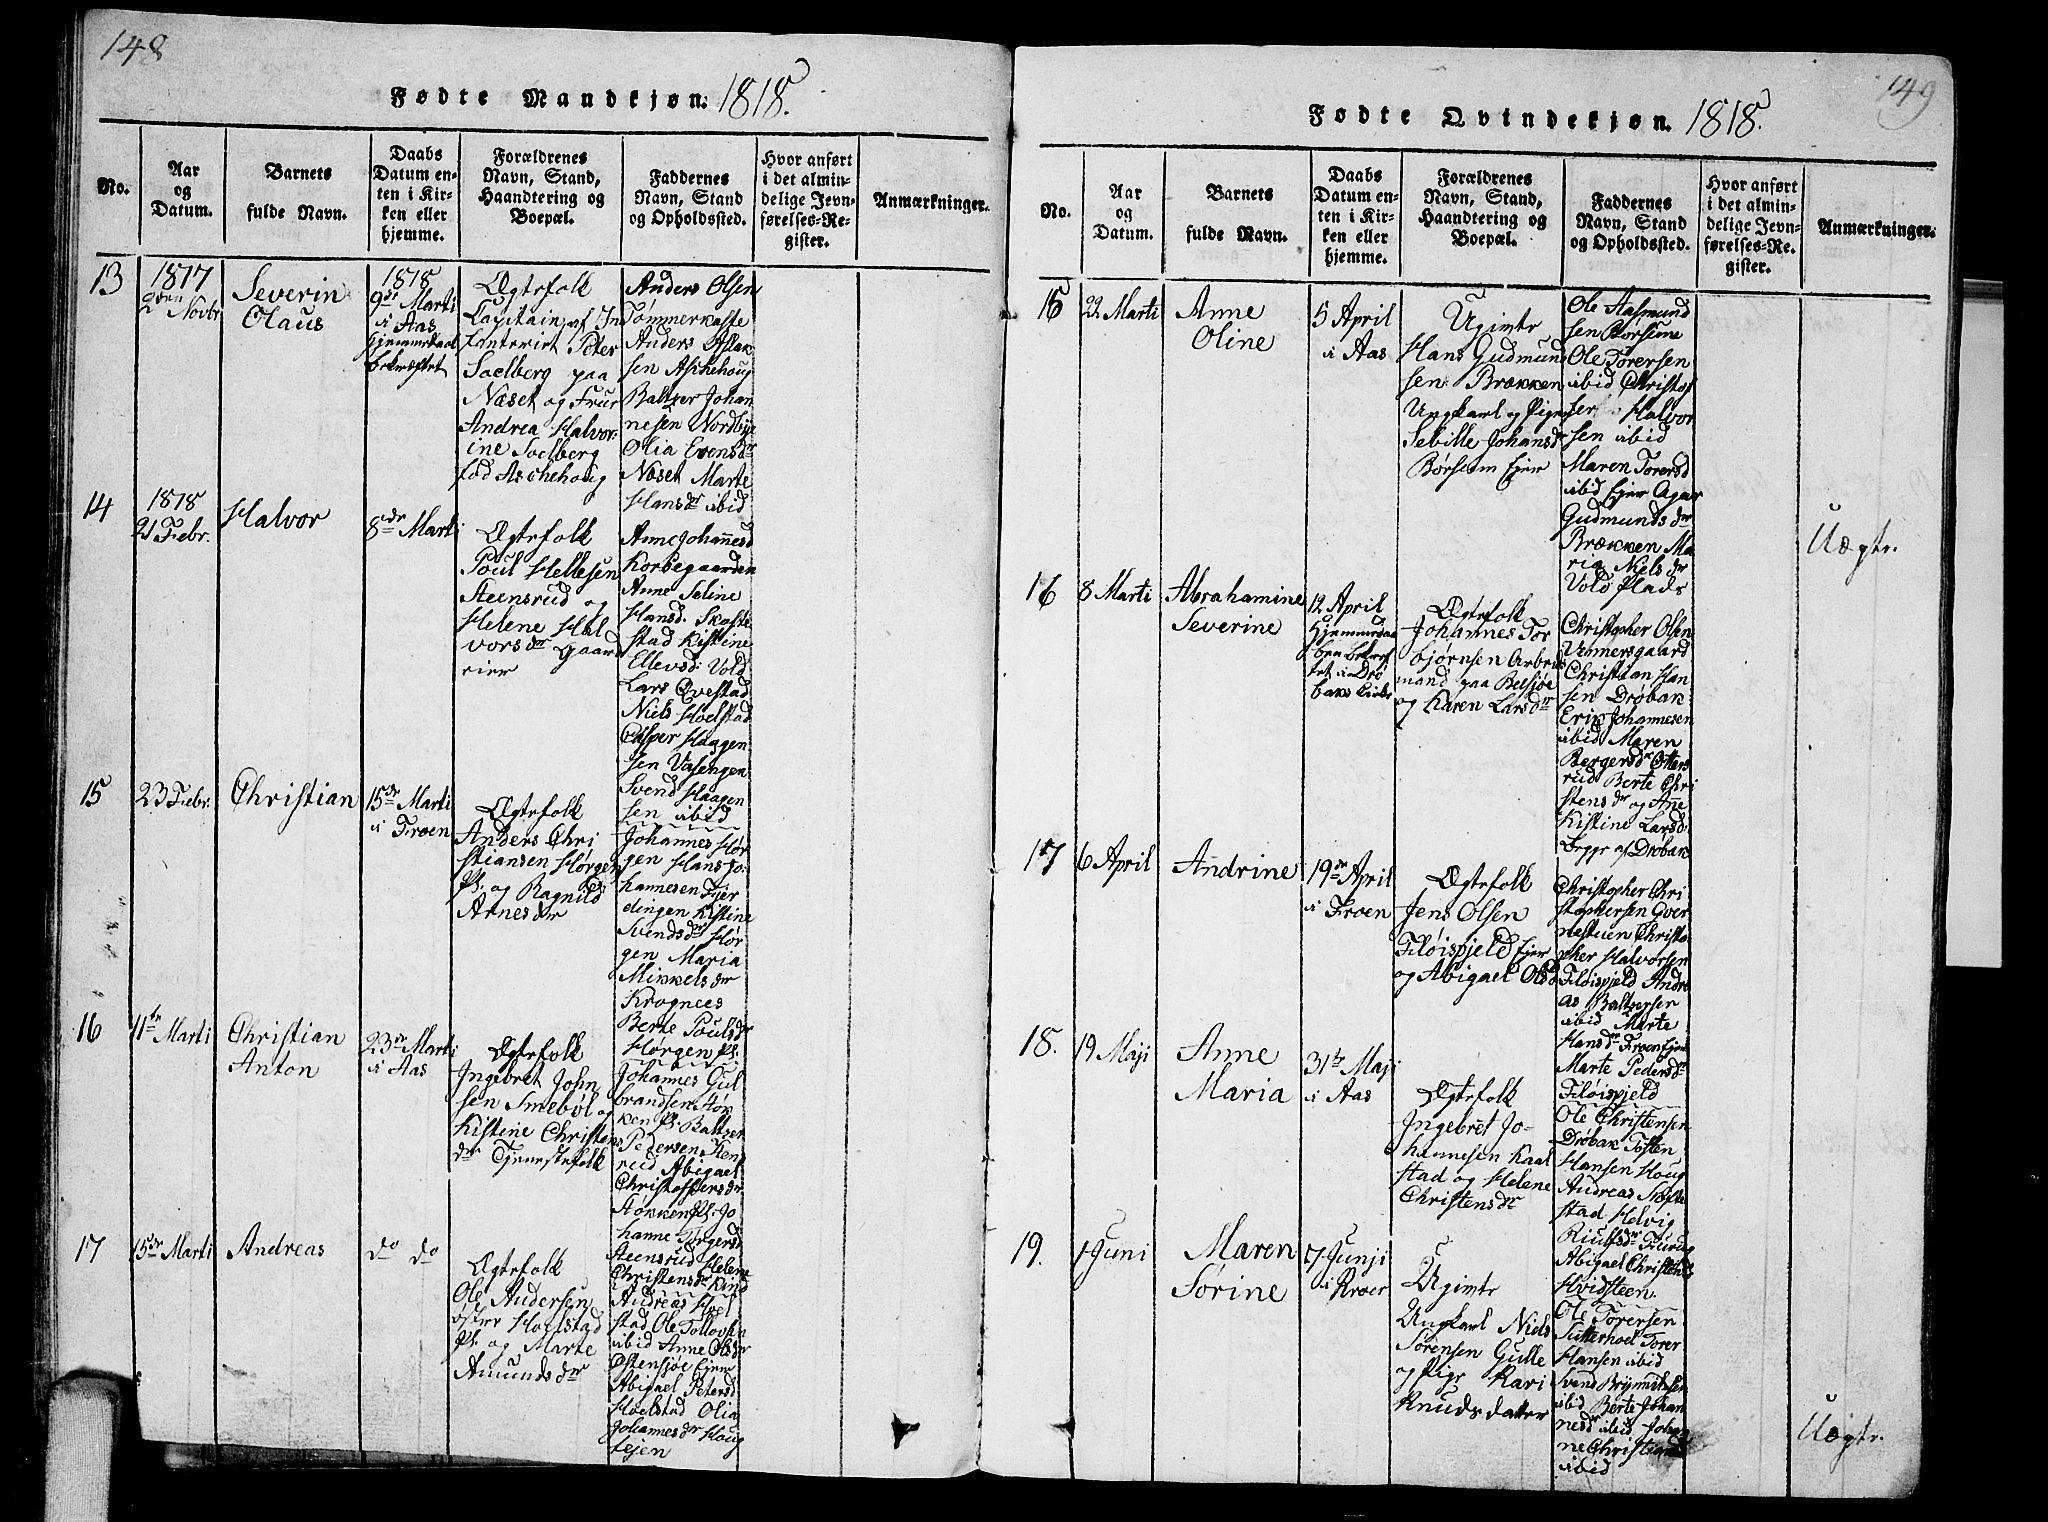 148
Fødte Mandkjøn. 1818.
No.
Aar
og
Datum.
Barnets
fulde Navn.
Daabs
Datum en-
ten i Kir-
ken eller
hjemme.
Forældrenes
Navn, Stand,
Haandtering og
Boepæl.
Faddernes
Navn, Stand
og Opholdssted.
Hvor anført
i det almin-
delige Jevn-
førelses-Re-
gister.
Anmærkninger.
13
1817
2den Novbr
Severin
Olaus
1818
9de Marti
i Aas
hjemmedaab
bekræftet
Ægtefolk
Capitain af In
fanteriet Peter
Soelberg paa
Næset og Frue
Andrea Halvor:
ine Soelberg
fød Aschehoug
Anders Olsen
Tømmerkaste
Anders Aslak
sen Aschehoug
Baltzer Johan
nesen Nordbye
Olia Evensdr
Næset Marte
Hansdr ibid
14
1818
21 Febr.
Halvor
8de Marti
Ægtefolk
Poul Hellesen
Steensrud og
Helene Hal
vorsdr Gaard
eier
Anne Johannesd
Korbegaarden
Anne Seline
Hansd. Skofte
stad Kistine
Ellevsd: Vold
Lars Qvestad
Niels Hoelstad
Casper Haagen
sen Vasengen
Svend Haagen
sen ibid
15
23 Febr.
Christian
15de Marti
i Froen
Ægtefolk
Anders Chri
stiansen Hørgen
Pl. og Ragnild
Arnesdr
Johannes Hør
gen Hans Jo:
hannesen Fjer
dingen Kistine
Svendsdr Hør
gen Maria
Mikkelsdr
Krognees
Berte Poulsdr
Hørgen Pl.
16
11te Marti
Christian
Anton
23de Marti
i Aas
Ægtefolk
Ingebret John
sen Smebøl og
Kistine Christens
dr Tjenestefolk
Johannes Gul
brandsen Støk
ken Pl. Baltzer
Pedersen Kens
rud Abigael
Christophersdr
Støkken Pl. Jo
hanne Torgersd
Steensrud Helene
Christensdr Kind
17
15de Marti
Andreas
do do
Ægtefolk
Ole Andersen
østre Hoelstad
Pl. og Marte
Amundsdr
Andreas Hoel
stad Ole Tollevsen
ibid Anne Olsdr
Østensjøe Ejer
Abigael Petersd
Hoelstad Olia
Johannesdr Houg
tejen
149
Fødte Qvindekjøn. 1818.
No.
Aar
og
Datum.
Barnets
fulde Navn.
Daabs
Datum en-
ten i Kir-
ken eller
hjemme.
Forældrenes
Navn, Stand,
Haandtering og
Boepæl.
Faddernes
Navn, Stand
og Opholdssted.
Hvor anført
i det almin-
delige Jevn-
førelses-Re-
gister.
Anmærkninger.
15
22 Marti
Anne
Oline
5 April
i Aas
Ugivte
Hans Gudmund
sen Brækken
Ungkarl og Pige
Sebille Johansdr
Børsum Ejer
Ole Aasmund
sen Børsum
Ole Torersen
ibid Christof
fer Halvor
sen ibid
Maren Torersd
ibid Ejer Agar
Gudmundsdr
Brækken Ma
ria Nielsdr
Vold Plads
Uægte.
16
8 Marti
Abrahamine
Severine
12 April
Hjemmedaa
ben bekræf
tet i Drø
baks Kirke
Ægtefolk
Johannes Tor
bjørnsen Arbeids
mand paa Belsjøe
og Karen Larsdr
Christopher Olsen
Vennersgaard
Christian Han
sen Drøbak
Erik Johannesen
ibid Maren
Bergersdr Otters
rud Berte Chri
stensdr og Ane
Kistine Larsd:
begge af Drøbak
17
6 April
Andrine
19de April
i Froen
Ægtefolk
Jens Olsen
Fløispjeld Ejer
og Abigael Olsd
Christopher Chri
stophersen Gver
nestuen Christo
pher Halvorsen
Fløispjeld Andre
as Baltzersen
ibid Marte
Hansdr Froen Ejer
Marte Pedersdr
Fløispjeld
18.
19 Maji
Anne
Maria
31te Maji
i Aas
Ægtefolk
Ingebret Jo-
hannesen Kaal
stad og Helene
Christensdr
Ole Christensen
Drøbak Tosten
Hansen Houg
Andreas Skofte
stad Helvig
Riulfsdr Furug
Abigael Christensd
Hvidsteen
19.
1 Juni
Maren
Sørine
7 Junji
i Kroer
Ugivte
Ungkarl Niels
Sørensen Gulle
og Pige Kari
Knudsdatter
Ole Torersen
Sutterhoel Torer
Hansen ibid
Svend Brynnildsen
ibid Berte Johan
nesdr ibid Johan
ne Christiansd
ibid
Uægte.